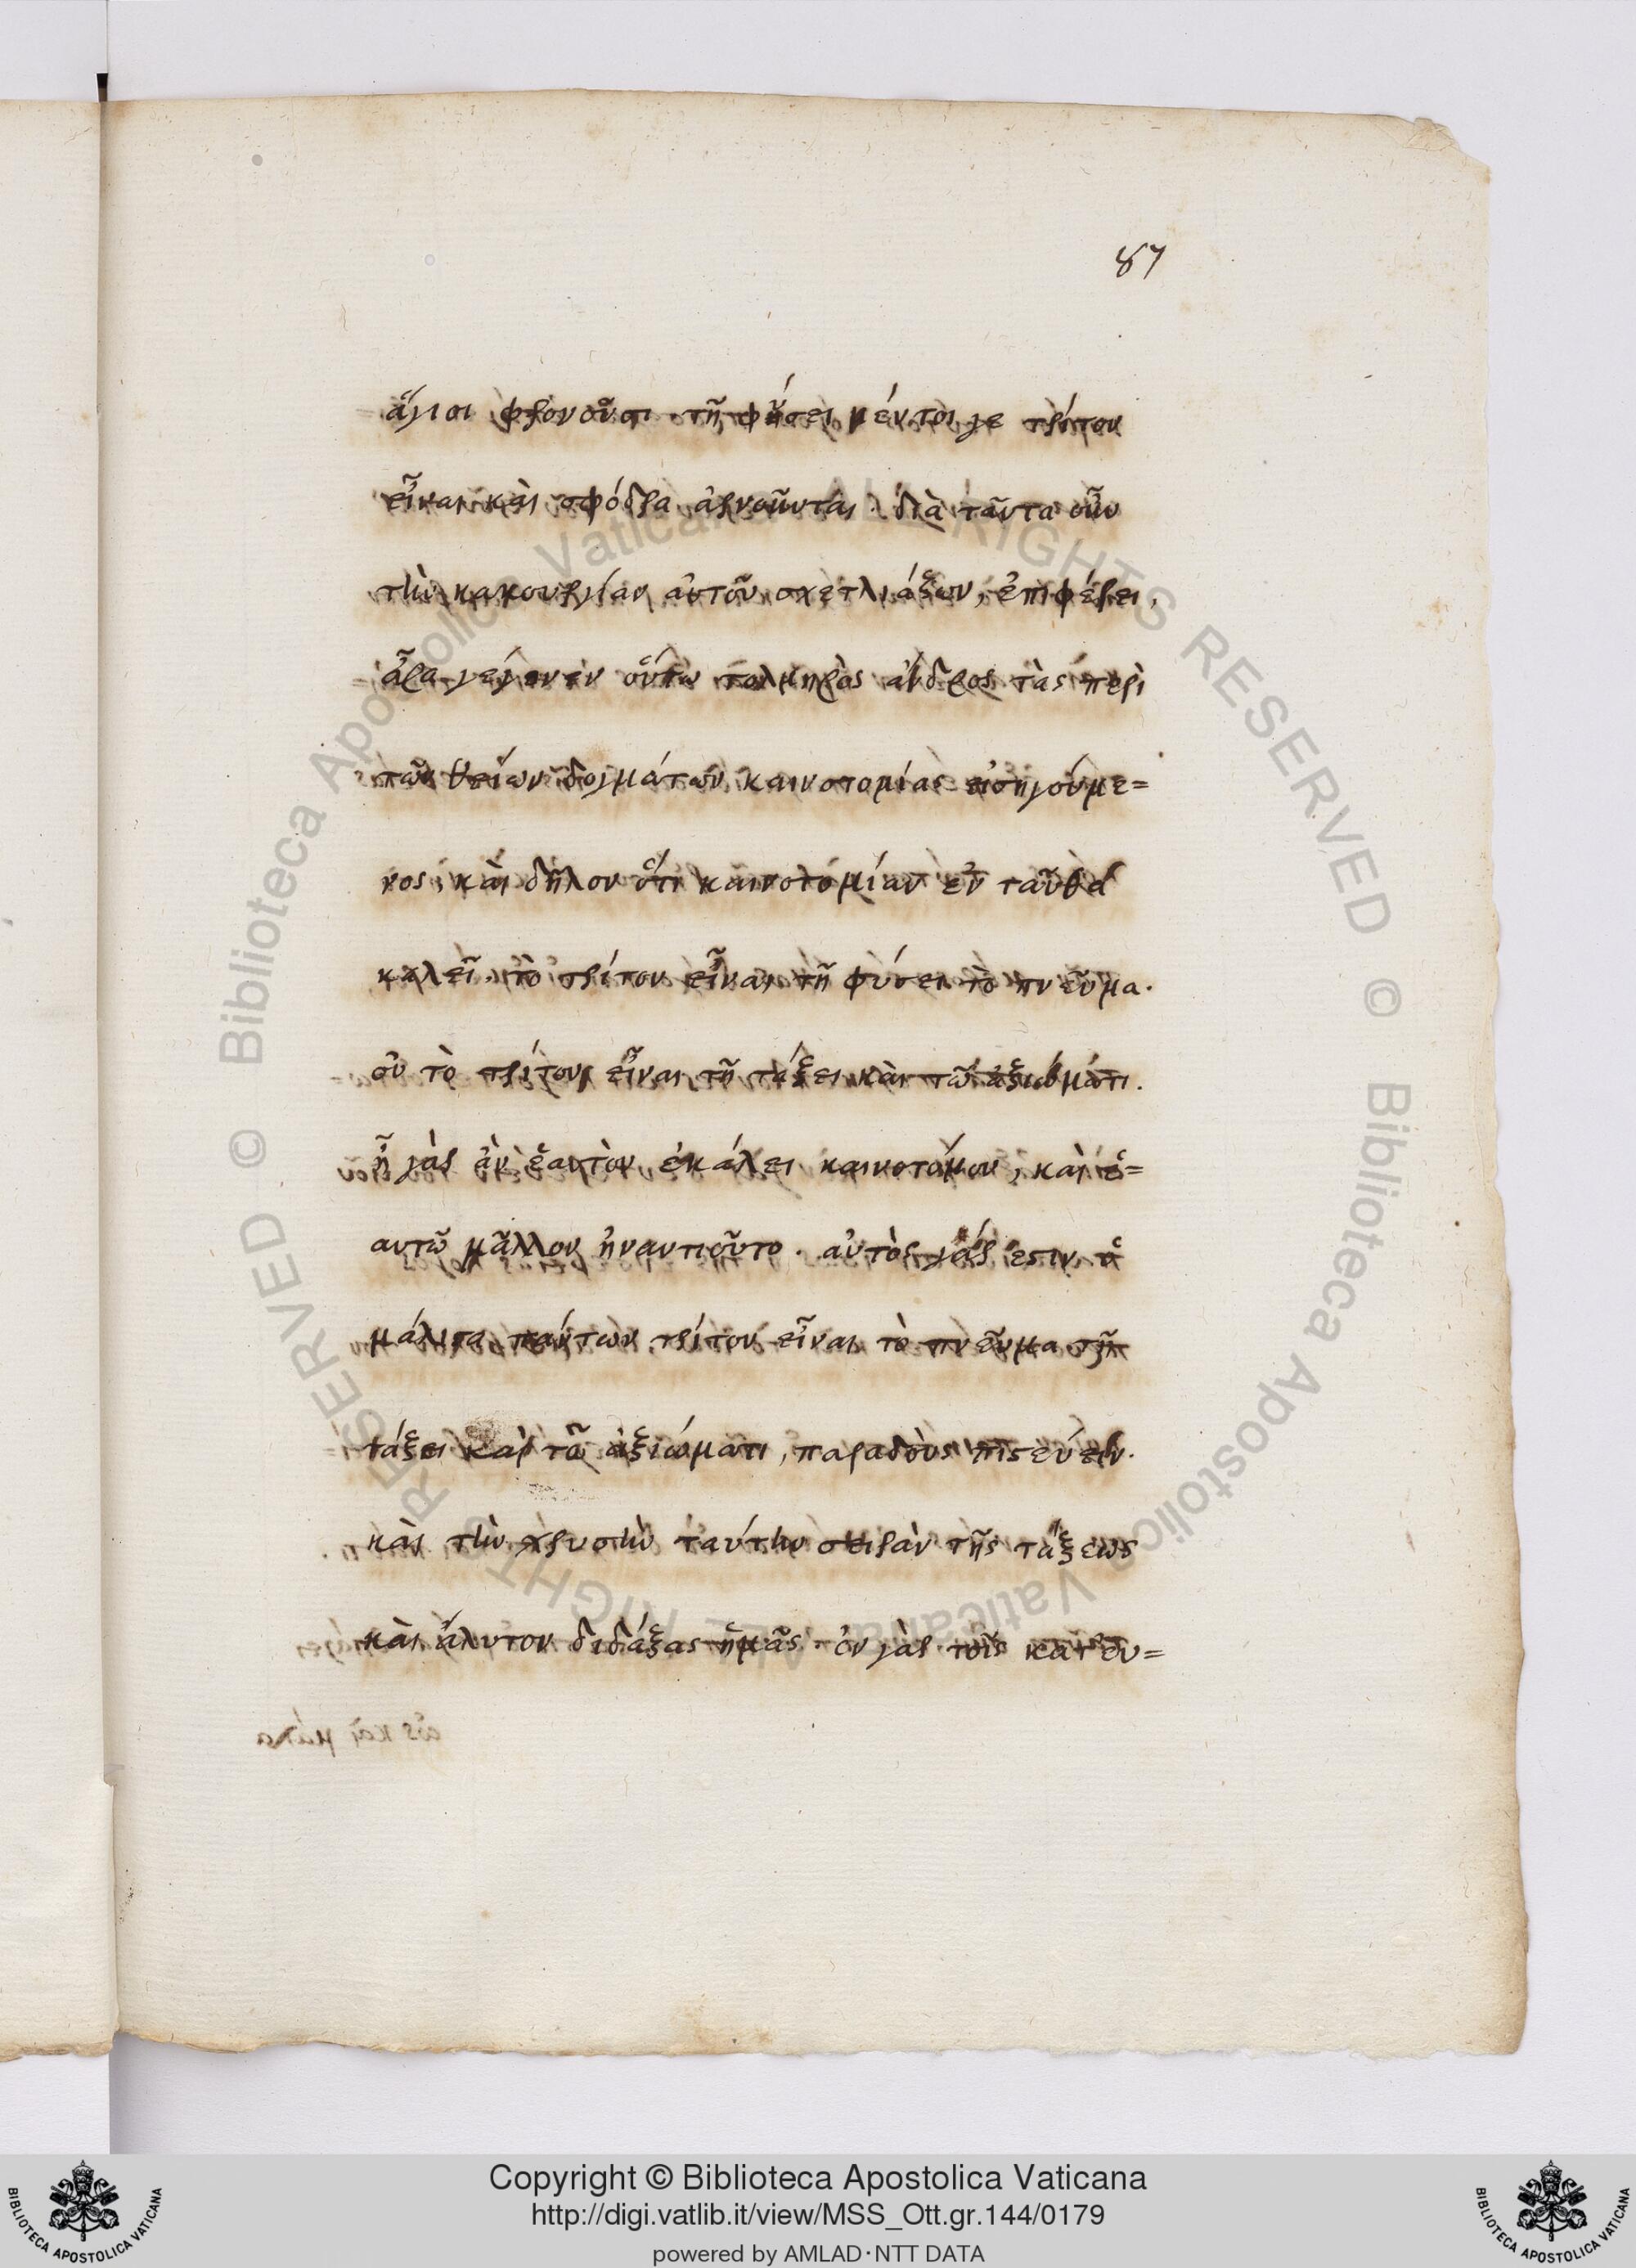 87
ἅγιοι φρονοῦσι τῆ φύσει μέντοι γε τρίτον
εἶναι καὶ σφόδρα ἀρνοῦνται. διὰ ταῦτα οὖν
τὴν κακουργίαν αὐτοῦ σχετλιάζων, ἐπιφέρει,
ἆρα γέγονεν οὕτω τολμηρὸς ἄνδρος τὰς περὶ
τῶν θείων δογμάτων καινοτομίας εἰσηγούμε=
νος, καὶ δῆλον ὅτι καινοτομίαν ἐν ταῦθα
καλεῖ, τὸ τρίτον εἶναι τῆ φύσει τὸ πνεῦμα.
οὐ τὸ τρίτον εἶναι τῆ τάξει καὶ τῶ ἀξιώματι.
ἦ γὰρ ἂν ἑαυτὸν ἐκάλει καινοτόμον, καὶ ἑ=
αυτῶ μᾶλλον ἠναντιοῦτο. αὐτὸς γάρ ἐστιν ὁ
μάλιστα πάντων τρίτον εἶναι τὸ πνεῦμα τῆ
τάξει καὶ τῶ ἀξιώματι, παραδοὺς πιστεύειν.
καὶ τὴν χρυσῆν ταύτην σειρὰν τῆς τάξεως
καὶ ἄλυτον διδάξας ἡμᾶς. ἐν γὰρ τοῖς κατ' εὐ=
Copyright © Biblioteca Apostolica Vaticana
http://digi.vatlib.it/view/MSS_Ott.gr.144/0179
powered by AMLAD·NTT DATA
BIBLIOTECA APOSTOLICA VATICANA
BIBLIOTECA APOSTOLICA VATICANA
© Biblioteca Apostolica Vaticana ALL RIGHTS RESERVED © Biblioteca Apostolica Vaticana ALL RIGHTS RESERVED